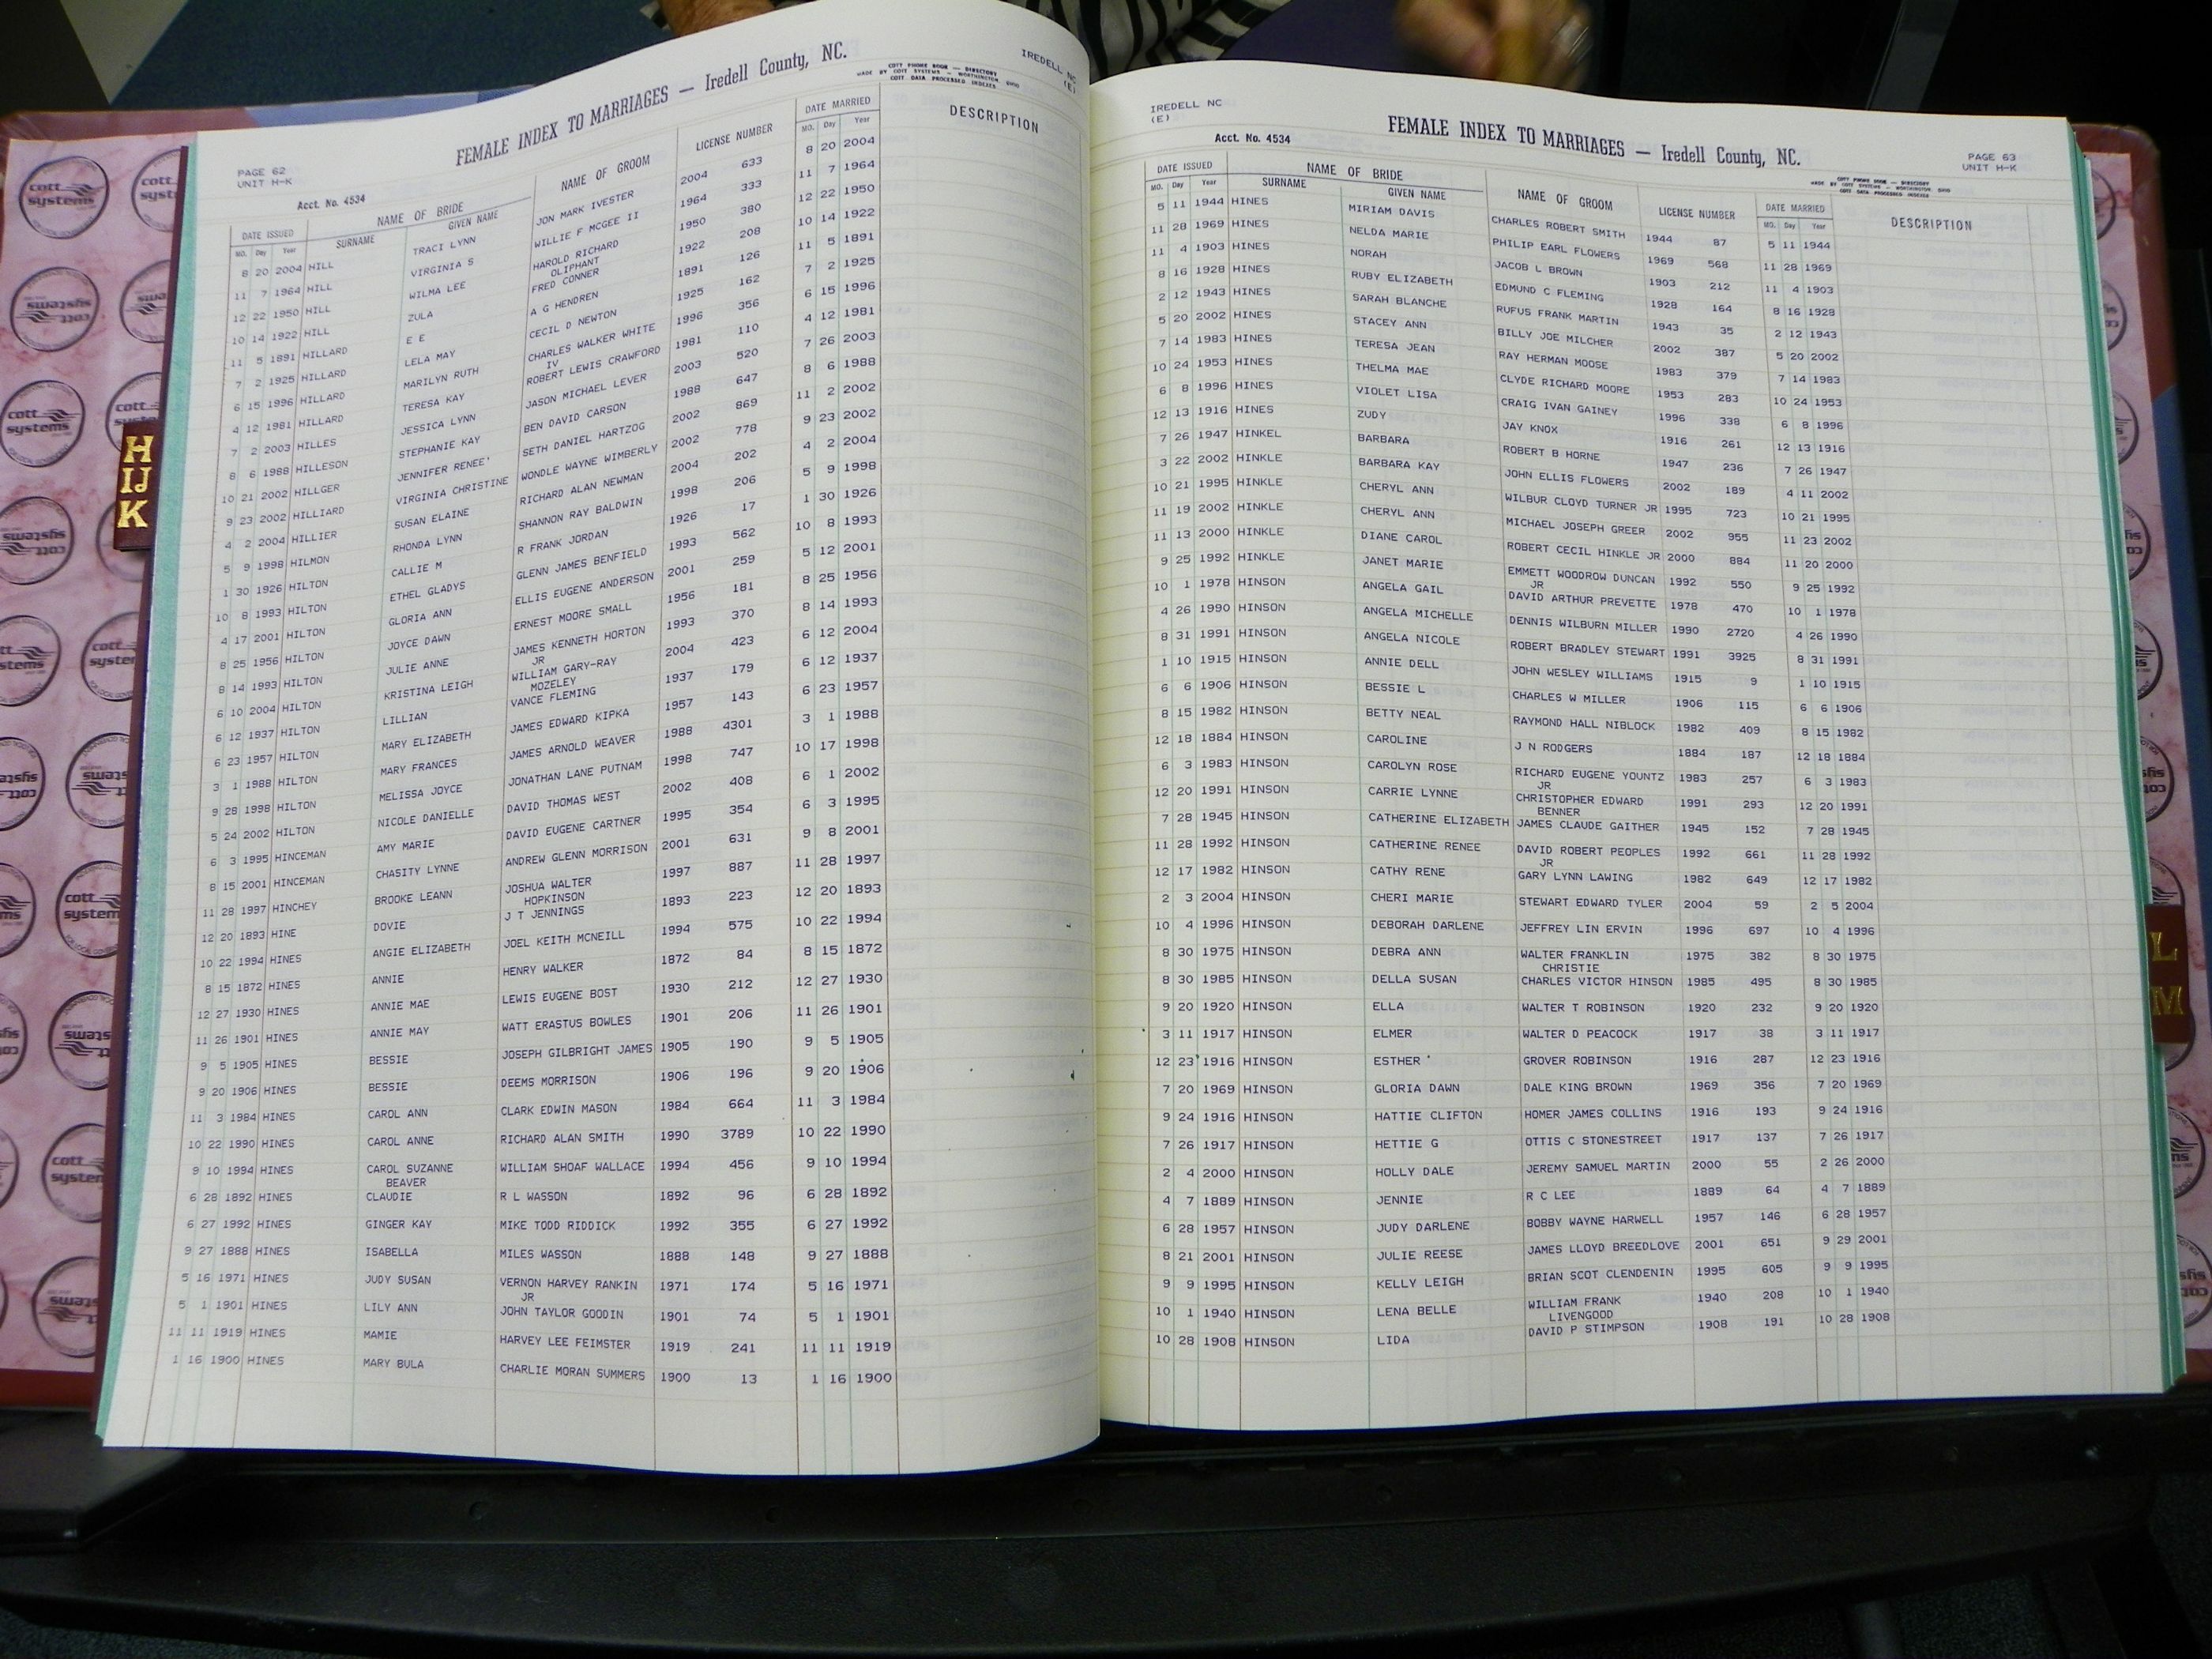 PAGE 62
UNIT H-K
Acct. No. 4534
FEMALE INDEX TO MARRIAGES — Iredell County, NC.
COTT PHONE BOOK — DIRECTORY
MADE BY COTT SYSTEMS — WORTHINGTON OHIO
COTT DATA PROCESSED INDEXES
IREDELL NC
(E)
DATE ISSUED NAME OF BRIDE NAME OF GROOM LICENSE NUMBER DATE MARRIED DESCRIPTION
MO. Day Year SURNAME GIVEN NAME MO. Day Year
8 20 2004 HILL TRACI LYNN JON MARK IVESTER 2004 633 8 20 2004
11 7 1964 HILL VIRGINIA S WILLIE F MCGEE II 1964 333 11 7 1964
12 22 1950 HILL WILMA LEE HAROLD RICHARD 1950 380 12 22 1950
OLIPHANT
10 14 1922 HILL ZULA FRED CONNER 1922 208 10 14 1922
11 5 1891 HILLARD E E A G HENDREN 1891 126 11 5 1891
7 2 1925 HILLARD LELA MAY CECIL D NEWTON 1925 162 7 2 1925
6 15 1996 HILLARD MARILYN RUTH CHARLES WALKER WHITE 1996 356 6 15 1996
IV
4 12 1981 HILLARD TERESA KAY ROBERT LEWIS CRAWFORD 1981 110 4 12 1981
7 2 2003 HILLES JESSICA LYNN JASON MICHAEL LEVER 2003 520 7 26 2003
8 6 1988 HILLESON STEPHANIE KAY BEN DAVID CARSON 1988 647 8 6 1988
10 21 2002 HILLGER JENNIFER RENEE' SETH DANIEL HARTZOG 2002 869 11 2 2002
9 23 2002 HILLIARD VIRGINIA CHRISTINE WONDLE WAYNE WIMBERLY 2002 778 9 23 2002
4 2 2004 HILLIER SUSAN ELAINE RICHARD ALAN NEWMAN 2004 202 4 2 2004
5 9 1998 HILMON RHONDA LYNN SHANNON RAY BALDWIN 1998 206 5 9 1998
1 30 1926 HILTON CALLIE M R FRANK JORDAN 1926 17 1 30 1926
10 8 1993 HILTON ETHEL GLADYS GLENN JAMES BENFIELD 1993 562 10 8 1993
4 17 2001 HILTON GLORIA ANN ELLIS EUGENE ANDERSON 2001 259 5 12 2001
8 25 1956 HILTON JOYCE DAWN ERNEST MOORE SMALL 1956 181 8 25 1956
8 14 1993 HILTON JULIE ANNE JAMES KENNETH HORTON 1993 370 8 14 1993
JR
6 10 2004 HILTON KRISTINA LEIGH WILLIAM GARY-RAY 2004 423 6 12 2004
MOZELEY
6 12 1937 HILTON LILLIAN VANCE FLEMING 1937 179 6 12 1937
6 23 1957 HILTON MARY ELIZABETH JAMES EDWARD KIPKA 1957 143 6 23 1957
3 1 1988 HILTON MARY FRANCES JAMES ARNOLD WEAVER 1988 4301 3 1 1988
9 28 1998 HILTON MELISSA JOYCE JONATHAN LANE PUTNAM 1998 747 10 17 1998
5 24 2002 HILTON NICOLE DANIELLE DAVID THOMAS WEST 2002 408 6 1 2002
6 3 1995 HINCEMAN AMY MARIE DAVID EUGENE CARTNER 1995 354 6 3 1995
8 15 2001 HINCEMAN CHASITY LYNNE ANDREW GLENN MORRISON 2001 631 9 8 2001
11 28 1997 HINCHEY BROOKE LEANN JOSHUA WALTER 1997 887 11 28 1997
HOPKINSON
12 20 1893 HINE DOVIE J T JENNINGS 1893 223 12 20 1893
10 22 1994 HINES ANGIE ELIZABETH JOEL KEITH MCNEILL 1994 575 10 22 1994
8 15 1872 HINES ANNIE HENRY WALKER 1872 84 8 15 1872
12 27 1930 HINES ANNIE MAE LEWIS EUGENE BOST 1930 212 12 27 1930
11 26 1901 HINES ANNIE MAY WATT ERASTUS BOWLES 1901 206 11 26 1901
9 5 1905 HINES BESSIE JOSEPH GILBRIGHT JAMES 1905 190 9 5 1905
9 20 1906 HINES BESSIE DEEMS MORRISON 1906 196 9 20 1906
11 3 1984 HINES CAROL ANN CLARK EDWIN MASON 1984 664 11 3 1984
10 22 1990 HINES CAROL ANNE RICHARD ALAN SMITH 1990 3789 10 22 1990
9 10 1994 HINES CAROL SUZANNE WILLIAM SHOAF WALLACE 1994 456 9 10 1994
BEAVER
6 28 1892 HINES CLAUDIE R L WASSON 1892 96 6 28 1892
6 27 1992 HINES GINGER KAY MIKE TODD RIDDICK 1992 355 6 27 1992
9 27 1888 HINES ISABELLA MILES WASSON 1888 148 9 27 1888
5 16 1971 HINES JUDY SUSAN VERNON HARVEY RANKIN 1971 174 5 16 1971
JR
5 1 1901 HINES LILY ANN JOHN TAYLOR GOODIN 1901 74 5 1 1901
11 11 1919 HINES MAMIE HARVEY LEE FEIMSTER 1919 241 11 11 1919
1 16 1900 HINES MARY BULA CHARLIE MORAN SUMMERS 1900 13 1 16 1900
IREDELL NC
(E)
Acct. No. 4534
FEMALE INDEX TO MARRIAGES — Iredell County, NC.
PAGE 63
UNIT H-K
COTT PHONE BOOK — DIRECTORY
MADE BY COTT SYSTEMS — WORTHINGTON OHIO
COTT DATA PROCESSED INDEXES
DATE ISSUED NAME OF BRIDE NAME OF GROOM LICENSE NUMBER DATE MARRIED DESCRIPTION
MO. Day Year SURNAME GIVEN NAME MO. Day Year
5 11 1944 HINES MIRIAM DAVIS CHARLES ROBERT SMITH 1944 87 5 11 1944
11 28 1969 HINES NELDA MARIE PHILIP EARL FLOWERS 1969 568 11 28 1969
11 4 1903 HINES NORAH JACOB L BROWN 1903 212 11 4 1903
8 16 1928 HINES RUBY ELIZABETH EDMUND C FLEMING 1928 164 8 16 1928
2 12 1943 HINES SARAH BLANCHE RUFUS FRANK MARTIN 1943 35 2 12 1943
5 20 2002 HINES STACEY ANN BILLY JOE MILCHER 2002 387 5 20 2002
7 14 1983 HINES TERESA JEAN RAY HERMAN MOOSE 1983 379 7 14 1983
10 24 1953 HINES THELMA MAE CLYDE RICHARD MOORE 1953 283 10 24 1953
6 8 1996 HINES VIOLET LISA CRAIG IVAN GAINEY 1996 338 6 8 1996
12 13 1916 HINES ZUDY JAY KNOX 1916 261 12 13 1916
7 26 1947 HINKEL BARBARA ROBERT B HORNE 1947 236 7 26 1947
3 22 2002 HINKLE BARBARA KAY JOHN ELLIS FLOWERS 2002 189 4 11 2002
10 21 1995 HINKLE CHERYL ANN WILBUR CLOYD TURNER JR 1995 723 10 21 1995
11 19 2002 HINKLE CHERYL ANN MICHAEL JOSEPH GREER 2002 955 11 23 2002
11 13 2000 HINKLE DIANE CAROL ROBERT CECIL HINKLE JR 2000 884 11 20 2000
9 25 1992 HINKLE JANET MARIE EMMETT WOODROW DUNCAN 1992 550 9 25 1992
JR
10 1 1978 HINSON ANGELA GAIL DAVID ARTHUR PREVETTE 1978 470 10 1 1978
4 26 1990 HINSON ANGELA MICHELLE DENNIS WILBURN MILLER 1990 2720 4 26 1990
8 31 1991 HINSON ANGELA NICOLE ROBERT BRADLEY STEWART 1991 3925 8 31 1991
1 10 1915 HINSON ANNIE DELL JOHN WESLEY WILLIAMS 1915 9 1 10 1915
6 6 1906 HINSON BESSIE L CHARLES W MILLER 1906 115 6 6 1906
8 15 1982 HINSON BETTY NEAL RAYMOND HALL NIBLOCK 1982 409 8 15 1982
12 18 1884 HINSON CAROLINE J N RODGERS 1884 187 12 18 1884
6 3 1983 HINSON CAROLYN ROSE RICHARD EUGENE YOUNTZ 1983 257 6 3 1983
JR
12 20 1991 HINSON CARRIE LYNNE CHRISTOPHER EDWARD 1991 293 12 20 1991
BENNER
7 28 1945 HINSON CATHERINE ELIZABETH JAMES CLAUDE GAITHER 1945 152 7 28 1945
11 28 1992 HINSON CATHERINE RENEE DAVID ROBERT PEOPLES 1992 661 11 28 1992
JR
12 17 1982 HINSON CATHY RENE GARY LYNN LAWING 1982 649 12 17 1982
2 3 2004 HINSON CHERI MARIE STEWART EDWARD TYLER 2004 59 2 5 2004
10 4 1996 HINSON DEBORAH DARLENE JEFFREY LIN ERVIN 1996 697 10 4 1996
8 30 1975 HINSON DEBRA ANN WALTER FRANKLIN 1975 382 8 30 1975
CHRISTIE
8 30 1985 HINSON DELLA SUSAN CHARLES VICTOR HINSON 1985 495 8 30 1985
9 20 1920 HINSON ELLA WALTER T ROBINSON 1920 232 9 20 1920
3 11 1917 HINSON ELMER WALTER D PEACOCK 1917 38 3 11 1917
12 23 1916 HINSON ESTHER GROVER ROBINSON 1916 287 12 23 1916
7 20 1969 HINSON GLORIA DAWN DALE KING BROWN 1969 356 7 20 1969
9 24 1916 HINSON HATTIE CLIFTON HOMER JAMES COLLINS 1916 193 9 24 1916
7 26 1917 HINSON HETTIE G OTTIS C STONESTREET 1917 137 7 26 1917
2 4 2000 HINSON HOLLY DALE JEREMY SAMUEL MARTIN 2000 55 2 26 2000
4 7 1889 HINSON JENNIE R C LEE 1889 64 4 7 1889
6 28 1957 HINSON JUDY DARLENE BOBBY WAYNE HARWELL 1957 146 6 28 1957
8 21 2001 HINSON JULIE REESE JAMES LLOYD BREEDLOVE 2001 651 9 29 2001
9 9 1995 HINSON KELLY LEIGH BRIAN SCOT CLENDENIN 1995 605 9 9 1995
10 1 1940 HINSON LENA BELLE WILLIAM FRANK 1940 208 10 1 1940
LIVENGOOD
10 28 1908 HINSON LIDA DAVID P STIMPSON 1908 191 10 28 1908
H
IJ
K
L
M
cott
systems